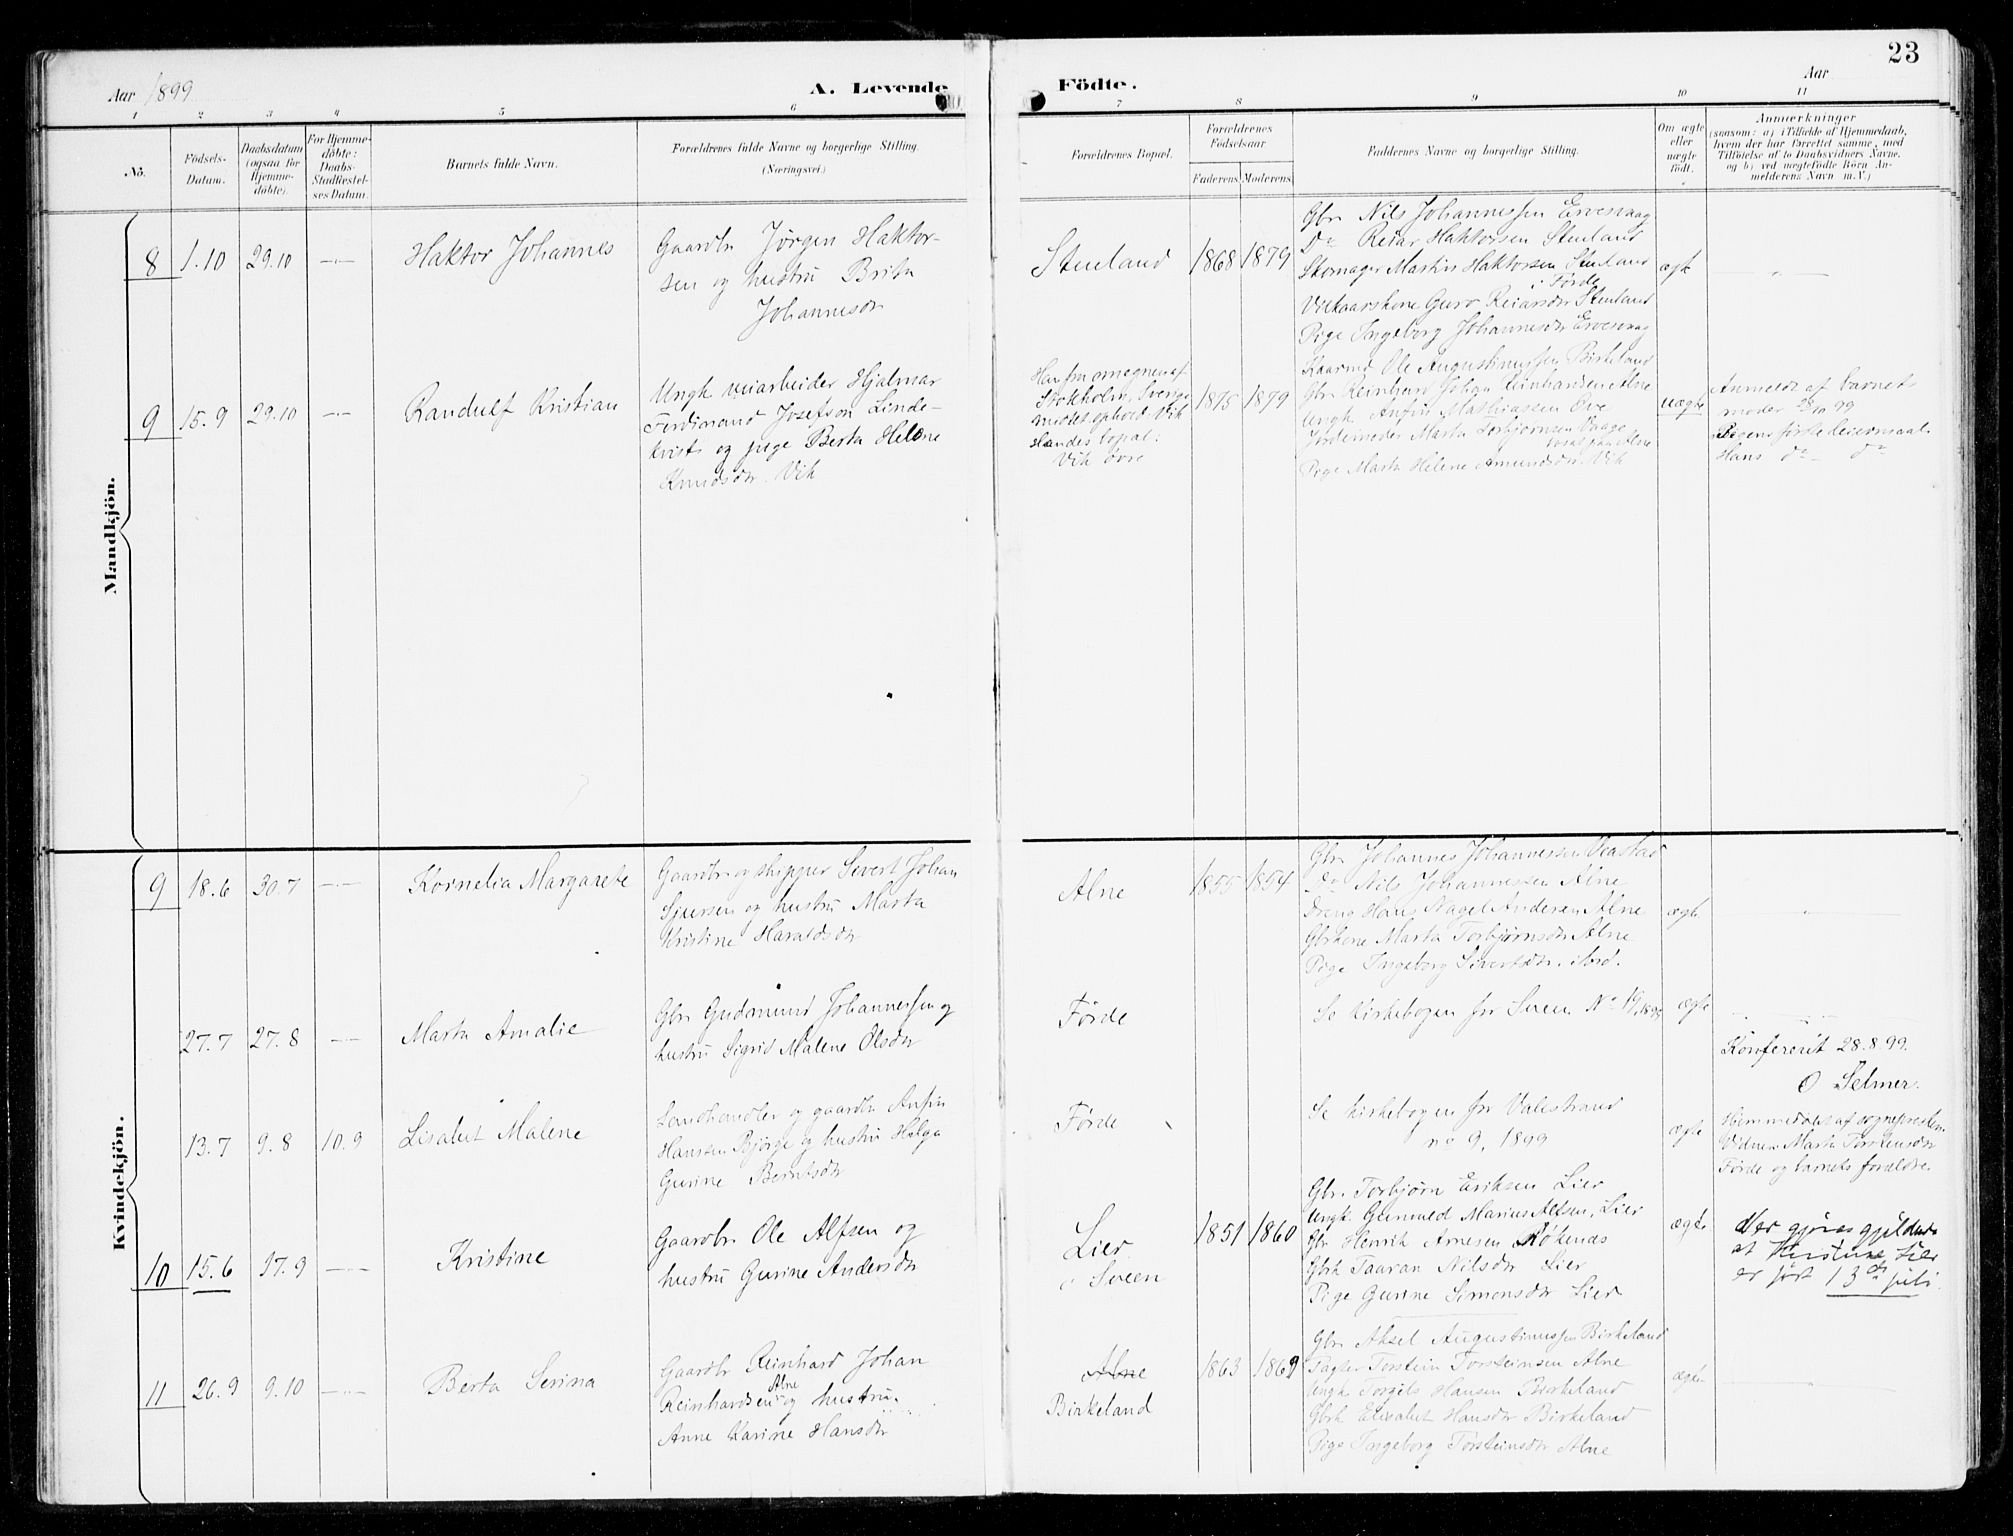 23
Aar 1899
A. Levende
Födte.
Aar
1 2 3 4 5 6 7 8 9 10 11
Nô.
Födsels-
Datum.
Daabsdatum
(ogsaa for
Hjemme-
döbte).
For Hjemme-
döbte:
Daabs-
Stadfæstel-
ses Datum.
Barnets fulde Navn.
Forældrenes fulde Navne og borgerlige Stilling.
(Næringsvei.)
Forældrenes Bopæl.
Forældrenes
Födselsaar
Faderens. Moderens.
Faddernes Navne og borgerlige Stilling.
Om ægte
eller
uægte
födt.
Anmærkninger
(saasom: a) i Tilfælde af Hjemmedaab,
hvem der har forrettet samme, med
Tilföielse af to Daabsvidners Navne.
og b) ved uægtefödte Börn An-
melderens Navn m. V.)
Mandkjön.
8 1.10 29.10 —"—
Haktor Johannes
Gaardbr Jørgen Haktor-
sen og hustru Brita
Johannesdr
Stueland
1868 1879
Gbr Nils Johannessen Ervesvaag
Do Reiar Haktorsen Stueland
Skomager Martin Haktorsen Stueland
i Førde
Vilkaarskone Guro Reiarsdr Stueland
Pige Ingeborg Johannesdr Ervesvaag
ægte
—"—
9 15.9 29.10 —"—
Randulf Kristian
Ungk veiarbeider Hjalmar
Ferdinand Josefson Linde-
kvist og pige Berta Helene
Knudsdr Vik
Han fra omegnen af
Stokholm, Sverige
midl. ophold Vik
Hendes bopæl:
Vik øvre
1875 1879
Kaarmd Ole Augustinussen Birkeland
Gbr Reinhard Johan Reinhardsen Alne
Ungk Anfin Mathiassen Øvre
Jordemoder Marta Torbjørnsen Vaage
Pige Marta Helene Amundsdr Vik
uægte
Anmeldt af barnets
moder 28/10 99
Pigens første leiermaal
Hans do — do
Kvindekjön.
9 18.6 30.7 —"—
Kornelia Margarete
Gaardbr og skipper Sivert Johan
Sjursen og hustru Marta
Kristine Haraldsdr
Alne
1855 1854
Gbr Johannes Johannessen Veastad
Do Nils Johannessen Alne
Dreng Hans Nagel Andersen Alne
Gbrkone Marta Torbjørnsdr Alne
Pige Ingeborg Sivertsdr. ibid.
ægte
—"—
27.7 27.8 —"—
Marta Amalie
Gbr Gudmund Johannessen og
hustru Sigrid Malene Olsdr
Førde
Se kirkebogen for Sveen No 19, 1899
ægte
Konfereret 28.8.99.
O Selmer.
13.7 9.8 10.9
Lisabet Malene
Landhandler og gaardbr Anfin
Hansen Bjørge og hustru Helga
Gurine Berntsdr
Førde
Se kirkebogen for Valestrand
no 9, 1899
ægte
Hjemmedøbt af sognepresten
Vidner Marta Torsteinsdr
Førde og barnets forældre.
10 15.6 17.9 —"—
Kristine
Gaardbr Ole Alfsen og
hustru Gurine Andersdr
Lier
i Sveen
1851 1860
Gbr Torbjørn Eriksen Lier
Ungk. Gunvald Marius Alfsen, Lier
Gbr Henrik Arnesen Røkenæs
Gbrk Taaran Nilsdr Lier
Pige Gurine Simonsdr Lier
ægte
Her gjøres gjeldende
at Kristine Lier
er født 13de juli.
11 26.9 9.10 —"—
Berta Serina
Gaardbr Reinhard Johan
Reinhardsen Alne og hustru
Anne Karine Hansdr
Alne
Birkeland
1863 1869
Gbr Aksel Augustinussen Birkeland
Fagter Torstein Torsteinsen Alne
Ungk Torgils Hansen Birkeland
Gbrk Elisabet Hansdr Birkeland
Pige Ingeborg Torsteinsdr Alne
ægte
—"—